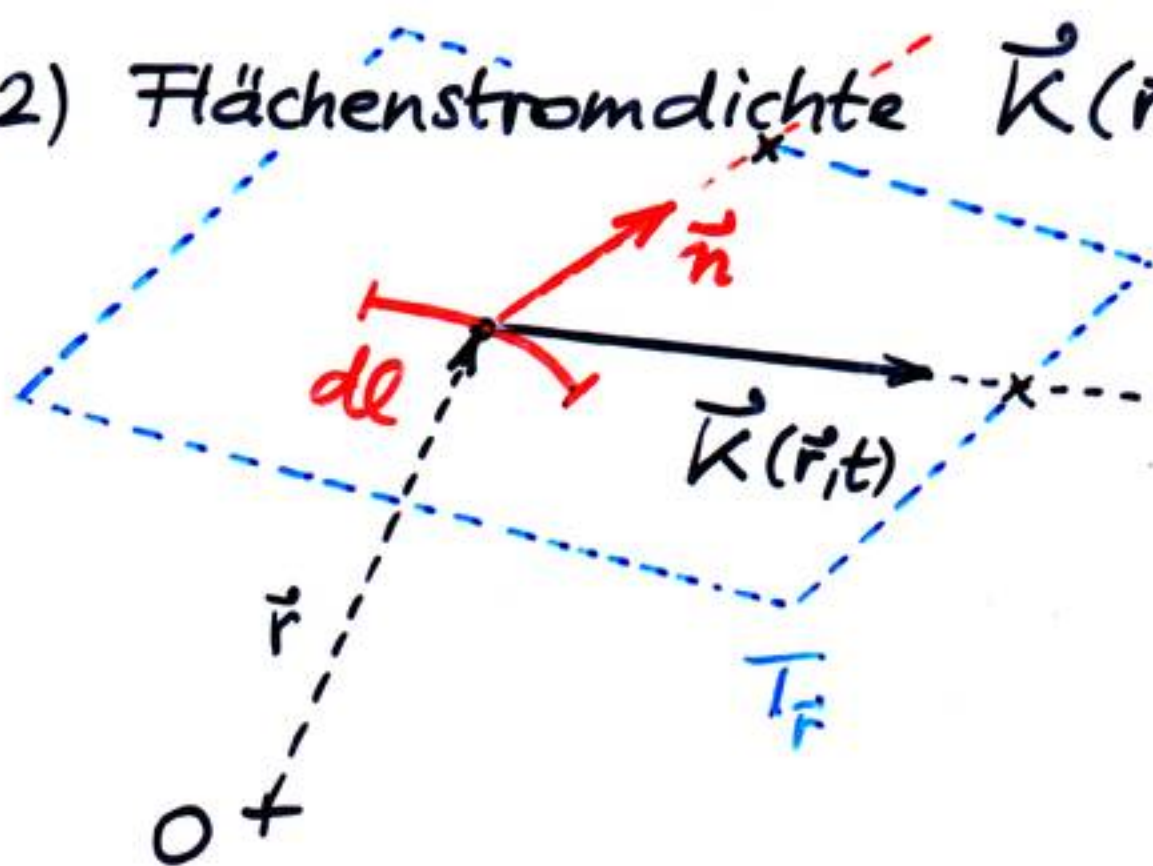 2) Flächenstromdichte K⃗(r
n⃗
dl
K⃗(r⃗,t)
r⃗
T_r⃗
O